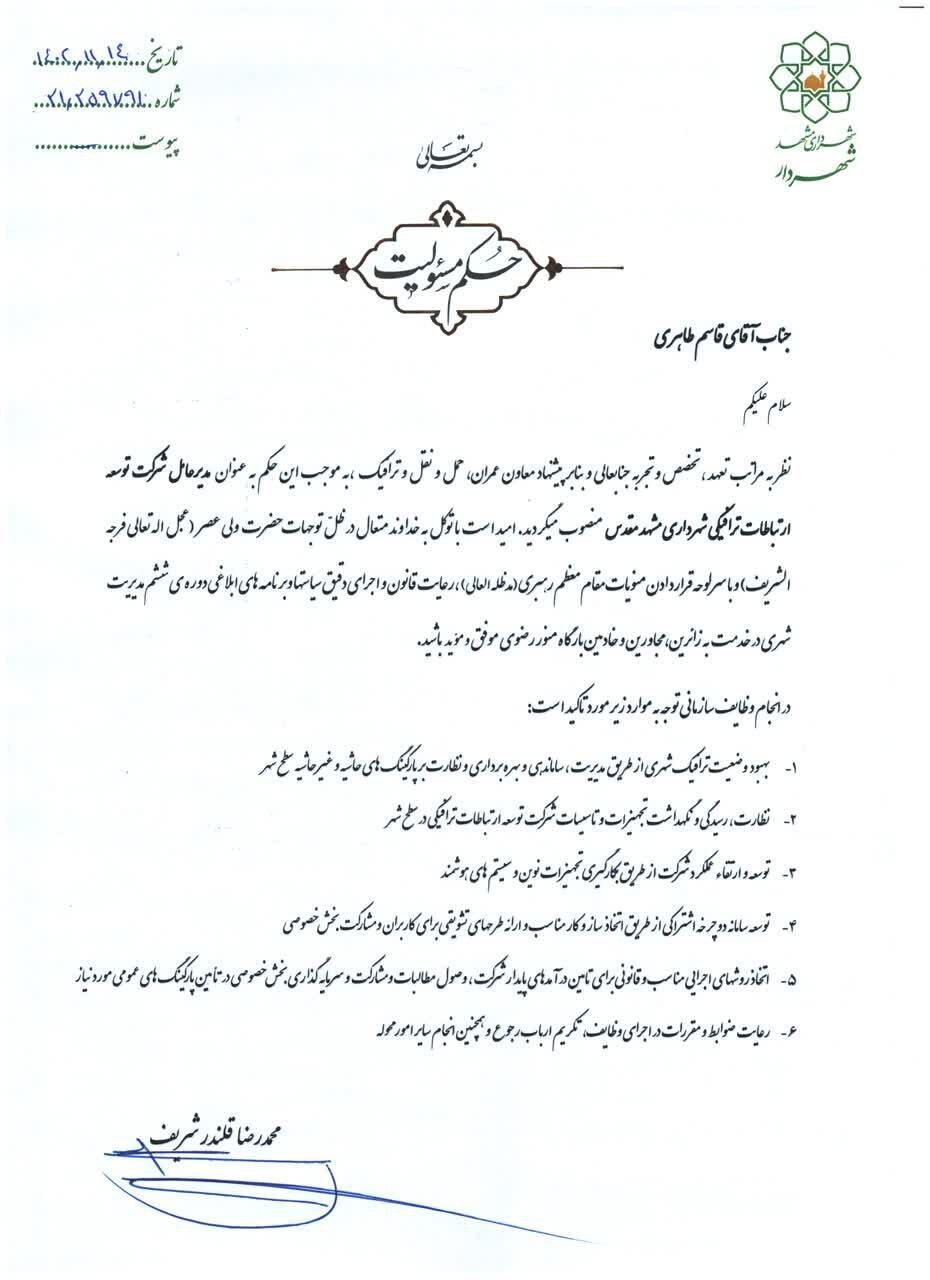 شهرداری مشهد
شهردار
تاریخ ۱۴۰۲,۱۱,۱۴
شماره ۲۱,۲۵۹۷۹۱
پیوست
بسمه تعالی
حکم مسئولیت
جناب آقای قاسم طاهری
سلام علیکم
نظر به مراتب تعهد، تخصص و تجربه جنابعالی و بنابر پیشنهاد معاون عمران، حمل و نقل و ترافیک ،به موجب این حکم به عنوان مدیرعامل شرکت توسعه
ارتباطات ترافیکی شهرداری مشهد مقدس منصوب میگردید. امید است با توکل به خداوند متعال در ظلّ توجهات حضرت ولی عصر (عجل اله تعالی فرجه
الشریف) و با سرلوحه قرار دادن منویات مقام معظم رهبری (مدظله العالی)، رعایت قانون و اجرای دقیق سیاستها و برنامه های ابلاغی دوره ی ششم مدیریت
شهری در خدمت به زائرین، مجاورین و خادمین بارگاه منور رضوی موفق و مؤید باشید.
در انجام وظایف سازمانی توجه به موارد زیر مورد تاکید است:
۱- بهبود وضعیت ترافیک شهری از طریق مدیریت، ساماندهی و بهره برداری و نظارت بر پارکینگ های حاشیه و غیر حاشیه سطح شهر
۲- نظارت، رسیدگی و نگهداشت تجهیزات و تاسیسات شرکت توسعه ارتباطات ترافیکی در سطح شهر
۳- توسعه و ارتقاء عملکرد شرکت از طریق بکارگیری تجهیزات نوین و سیستم های هوشمند
۴- توسعه سامانه دوچرخه اشتراکی از طریق اتخاذ ساز و کار مناسب و ارائه طرحهای تشویقی برای کاربران و مشارکت بخش خصوصی
۵- اتخاذ روشهای اجرایی مناسب و قانونی برای تامین درآمدهای پایدار شرکت، وصول مطالبات و مشارکت و سرمایه گذاری بخش خصوصی در تأمین پارکینگ های عمومی مورد نیاز
۶- رعایت ضوابط و مقررات در اجرای وظایف، تکریم ارباب رجوع و همچنین انجام سایر امور محوله
محمدرضا قلندر شریف